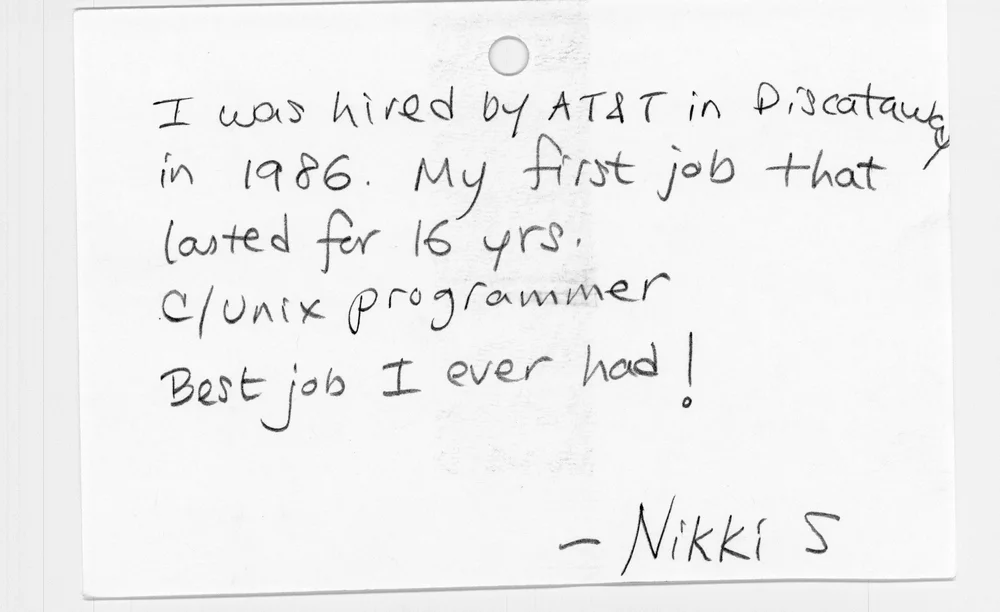 I was hired by AT&T in Piscataway
in 1986. My first job that
lasted for 16 yrs.
C/Unix programmer
Best job I ever had!
- Nikki S